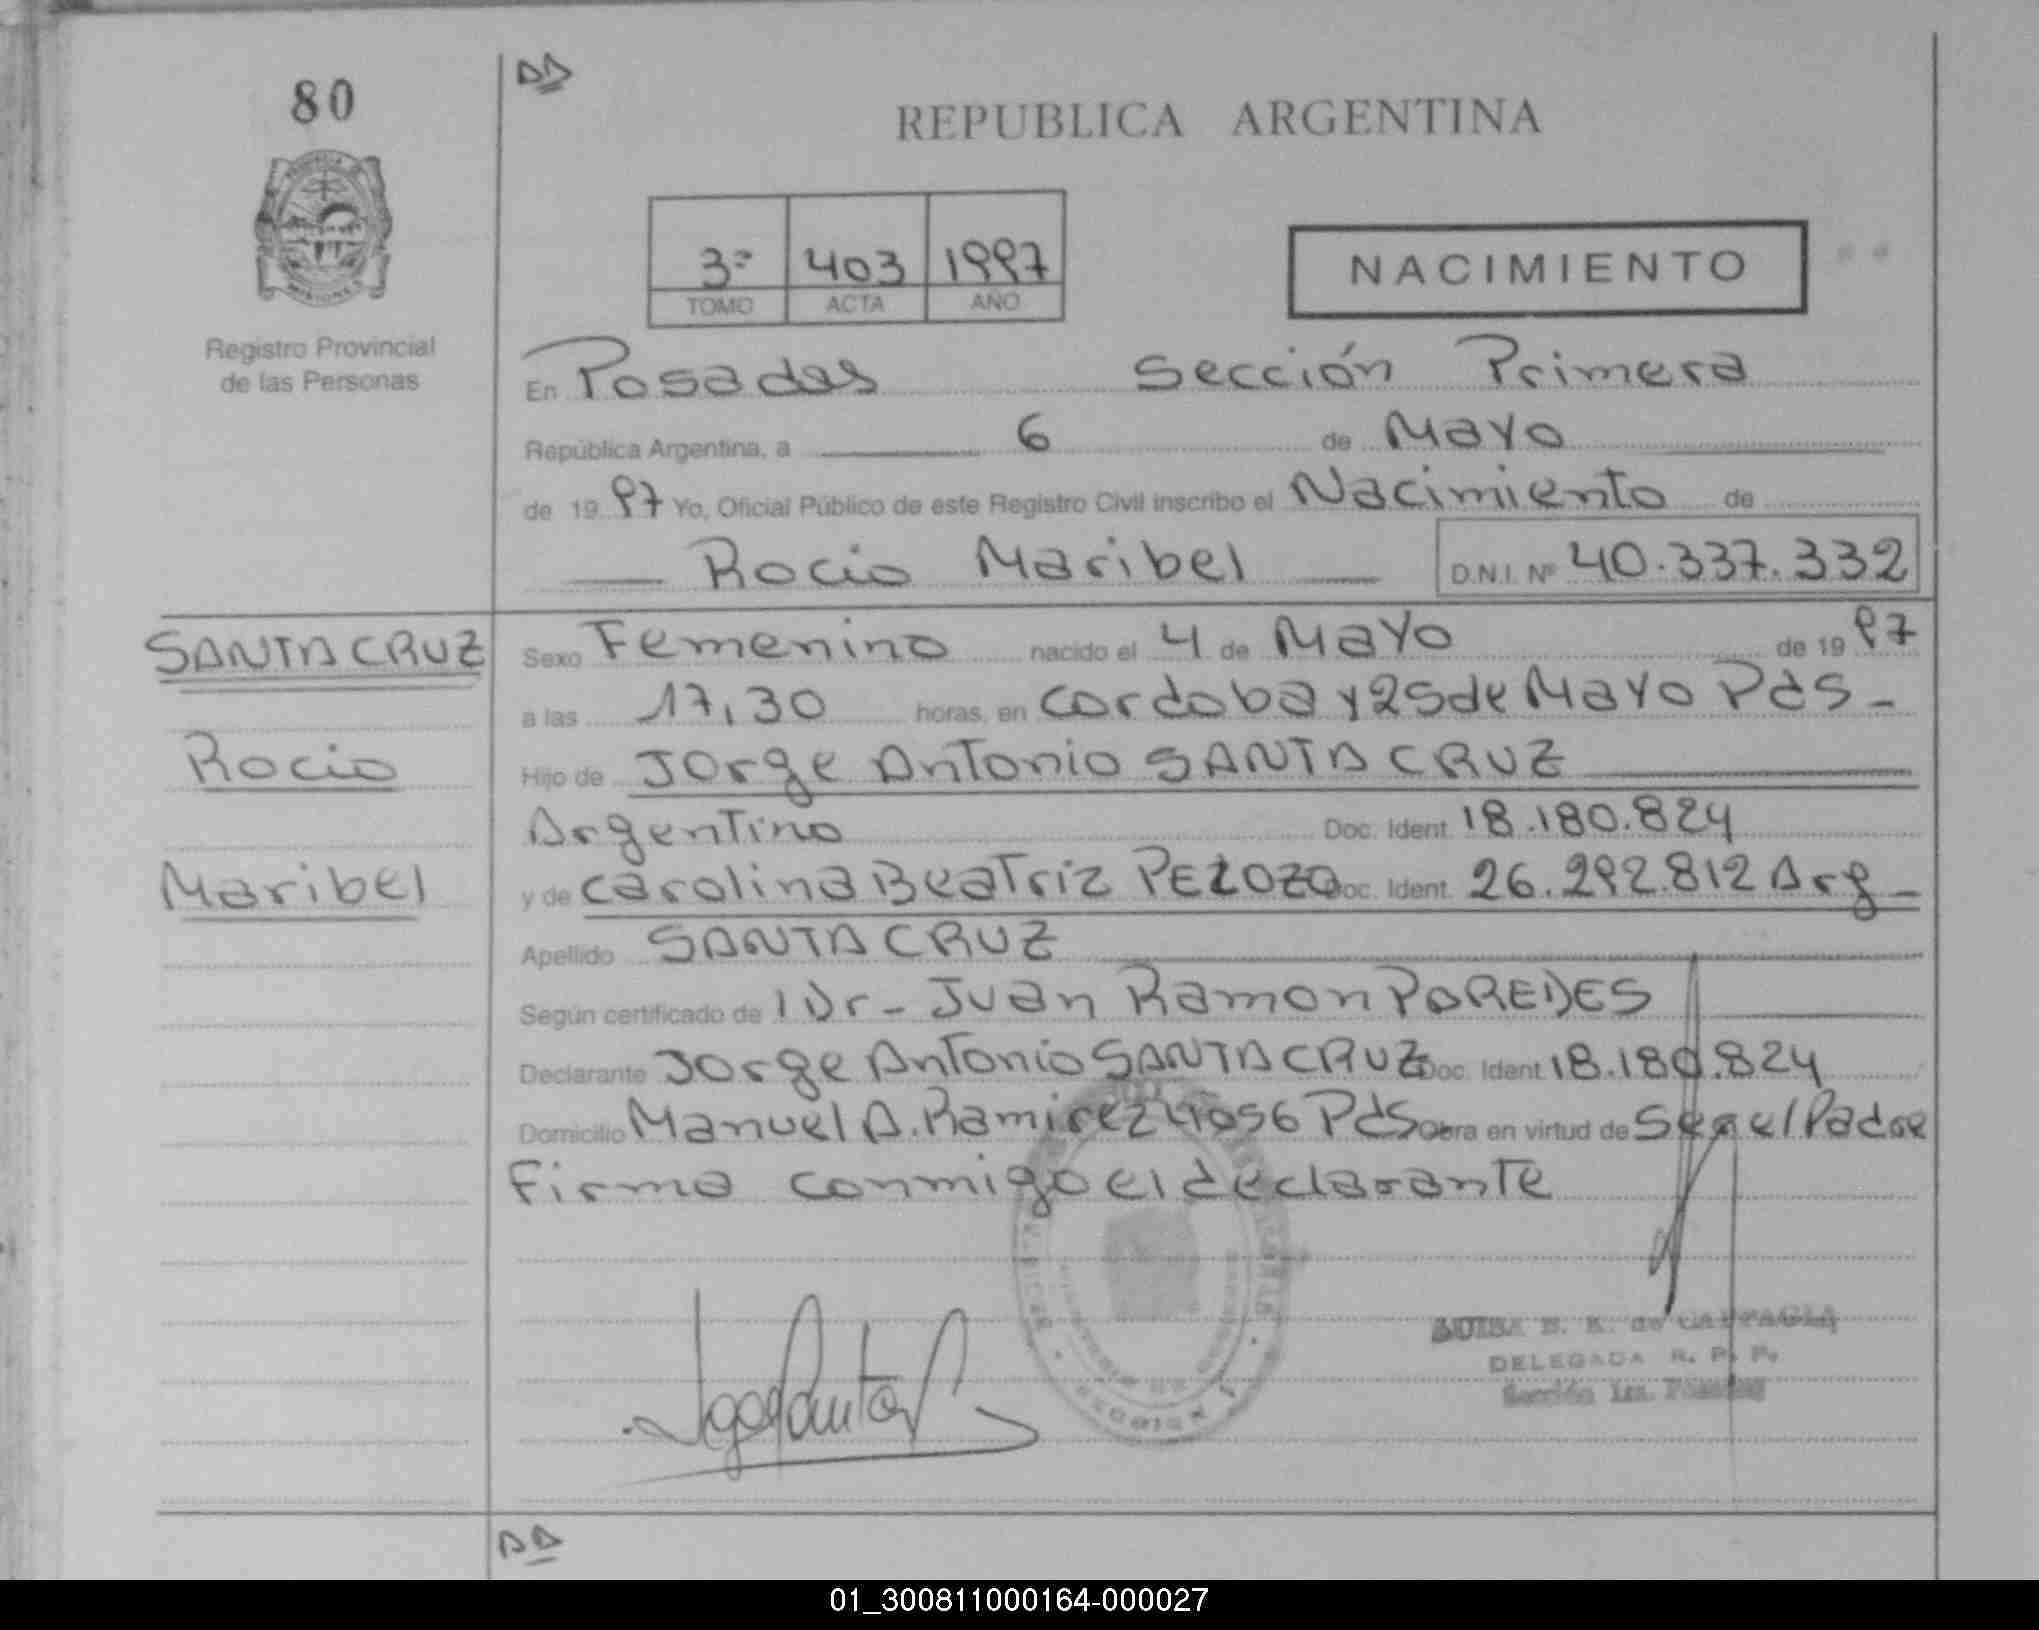 80
REPUBLICA ARGENTINA
3º 403 1997
TOMO ACTA AÑO
NACIMIENTO
Registro Provincial
de las Personas
En Posadas Sección Primera
República Argentina, a 6 de Mayo
de 1997 Yo, Oficial Público de este Registro Civil inscribo el Nacimiento de
Rocio Maribel D.N.I. Nº 40.337.332
SANTA CRUZ
Rocio
Maribel
Sexo Femenino nacido el 4 de Mayo de 1997
a las 17,30 horas, en Cordoba y 25 de Mayo Pds -
Hijo de Jorge Antonio SANTA CRUZ
Argentino Doc. Ident. 18.180.824
y de Carolina Beatriz PEZOZO Doc. Ident. 26.292.812 Arg -
Apellido SANTA CRUZ
Según certificado de l Dr - Juan Ramon PAREDES
Declarante Jorge Antonio SANTA CRUZ Doc. Ident. 18.180.824
Domicilio Manuel A. Ramirez 4056 Pds Obra en virtud de Ser el Padre
Firma conmigo el declarante
de CAMPAGLIA
DELEGADA R. P. P.
Sección 1ra. Posadas
01_300811000164-000027